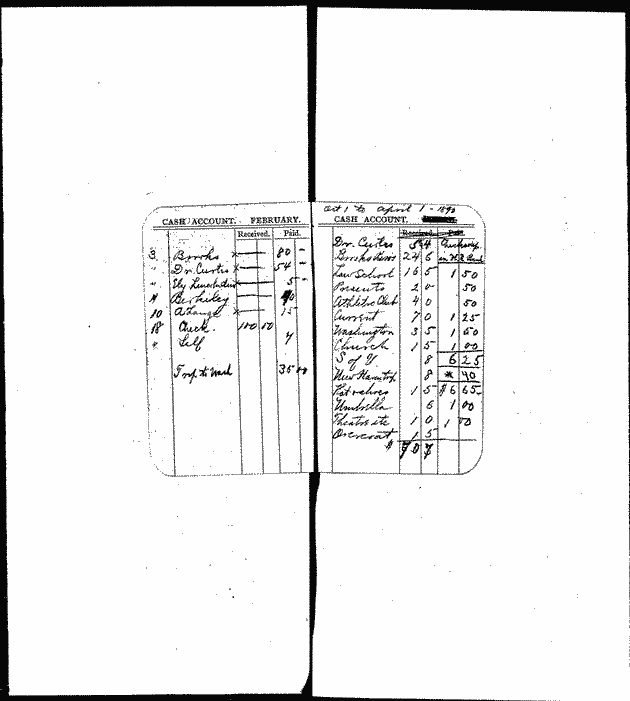 CASH ACCOUNT. FEBRUARY.
Received. Paid.
3 Brooks x 80 -
" Dr. Curtis x 54 -
" Ely 5 -
Berkeley
10 A. Lange x 15
18 Check. 100 00
" Self 4
Trip to Wash 35 00
Oct 1 to April 1 - 1890
CASH ACCOUNT.
Received. Paid.
Dr. Curtis 54
Brooks 246
Law School 165 1 50
Presents 20 50
Athletic Club 40 50
Current 70 1 25
Washington 35 1 50
Church 15 1 00
S of Y 8 6 25
New Haven trip 8 * 40
15 $6 65
Umbrella 6 1 00
Theatre etc 10 1 00
Overcoat 15
$ 707